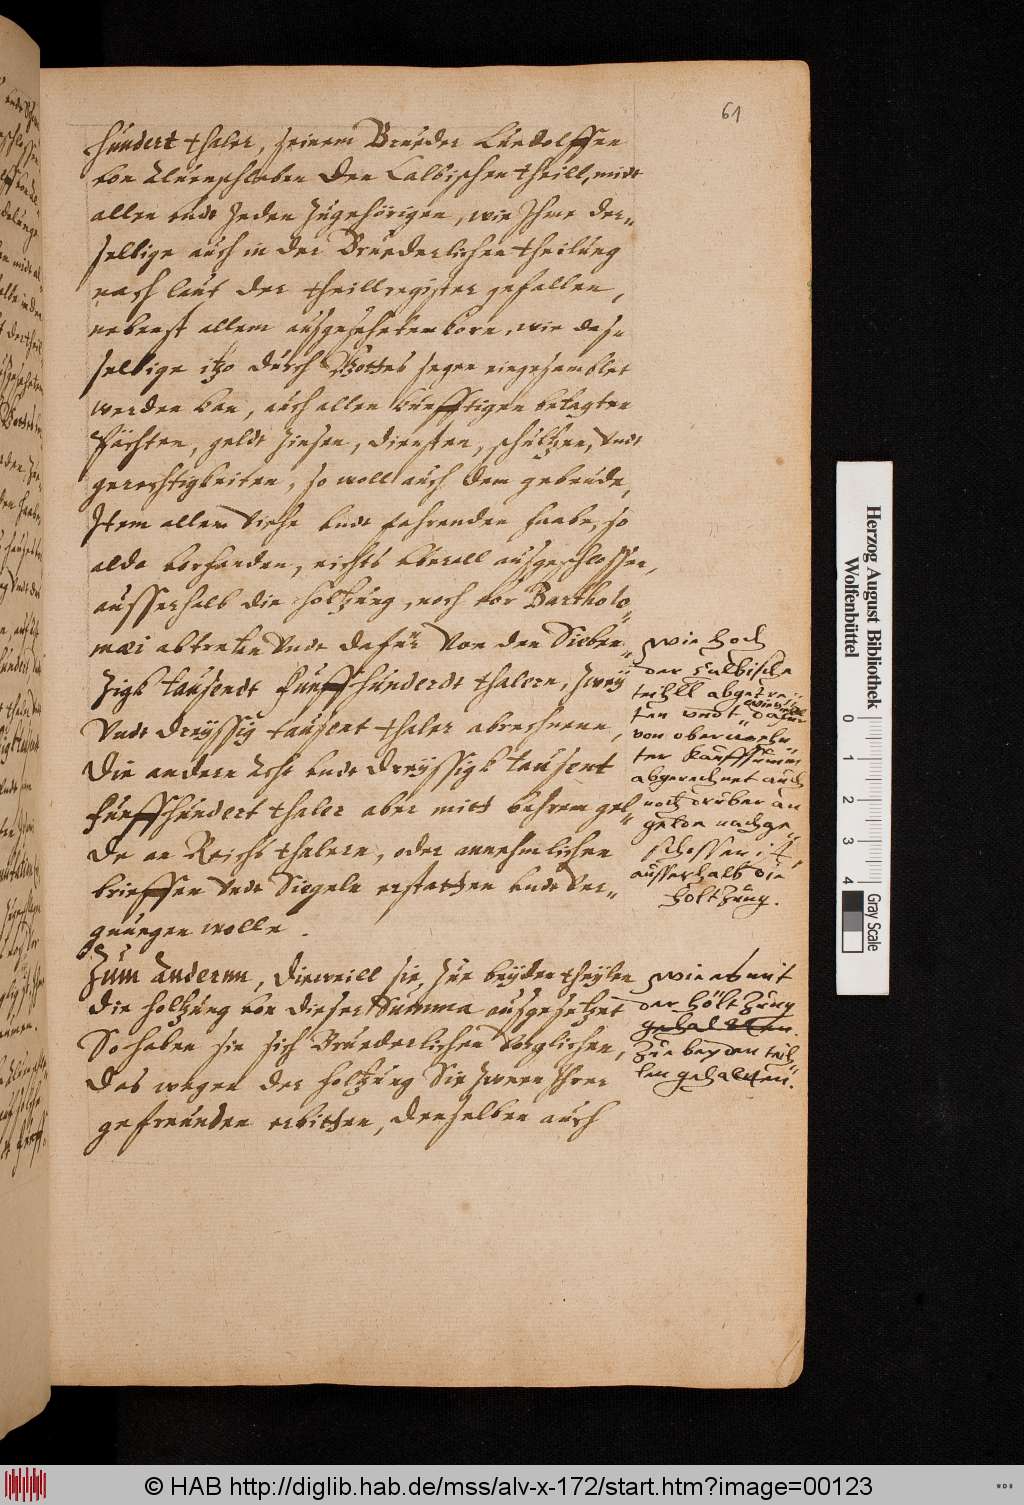 61
hundert thaler, seinem Brueder Luedolffen
von Aluenschleben den Calbischen theill, midt
allen undt Jeden Zugehörigen, wie Ihme der„
selbige auch in der Bruederlichen theilung
nach laut der theillregister gefallen,
nebenst allem ausgeseheten korn, wie das„
selbige itzo durch Gottes segen eingesamblet
werden kan, auch allen kuenfftigen betagten
Pächten, geldt Zinsen, diensten, schultzen, Undt
gerechtigkeiten, so woll auch dem gebeude,
Item allem Viehe undt fahrenden haabe, so
alda vorhanden, nichts überall ausgeschlossen,
ausserhalb die holtzung, noch vor Bartholo„
mæi abtreten Undt dafür Von den Sieben„
Zigk tausendt fünffhunderdt thalern, Zweÿ
Undt dreyssig tausent thaler abrechnenn,
Die andern Acht undt dreyssigk tausent
fünffhundert thaler aber mitt bahrem gel„
de an Reichs thalern, oder annehmlichen
brieffen Undt Siegeln erstatten undt Ver„
gnuegen wolle.
Zum Andernn, dieweill sie zue beyden theylen
die holtzung von dieser Summa ausgesetzet
So haben sie sich Brüederlichen Verglichen,
Das wegen der holtzung Sie Zween Ihrer
gefreunden erbitten, denselben auch
wie hoch
der Calbische
teihll abgetre„
ten undt dafur
von obernenn„
ter kauffsumm
abgerechnet auch
noch druber an
gelde nachge„
schossen ist,
ausserhalb die
holtzung.
wie es mit
der höltzung
gehaltten.
Zue beyden teih„
len gehalten.
Herzog August Bibliothek
Wolfenbüttel
0 1 2 3 4
Gray Scale
© HAB http://diglib.hab.de/mss/alv-x-172/start.htm?image=00123